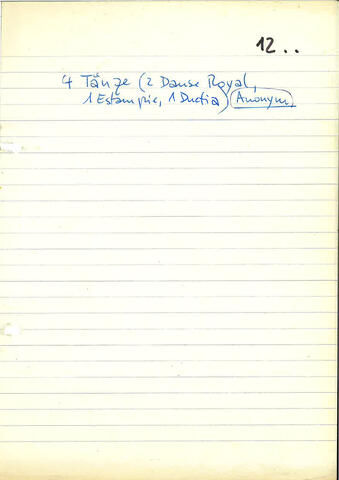 12..
4 Tänze (2 Danse Royal,
1 Estampie, 1 Ductia) Anonym